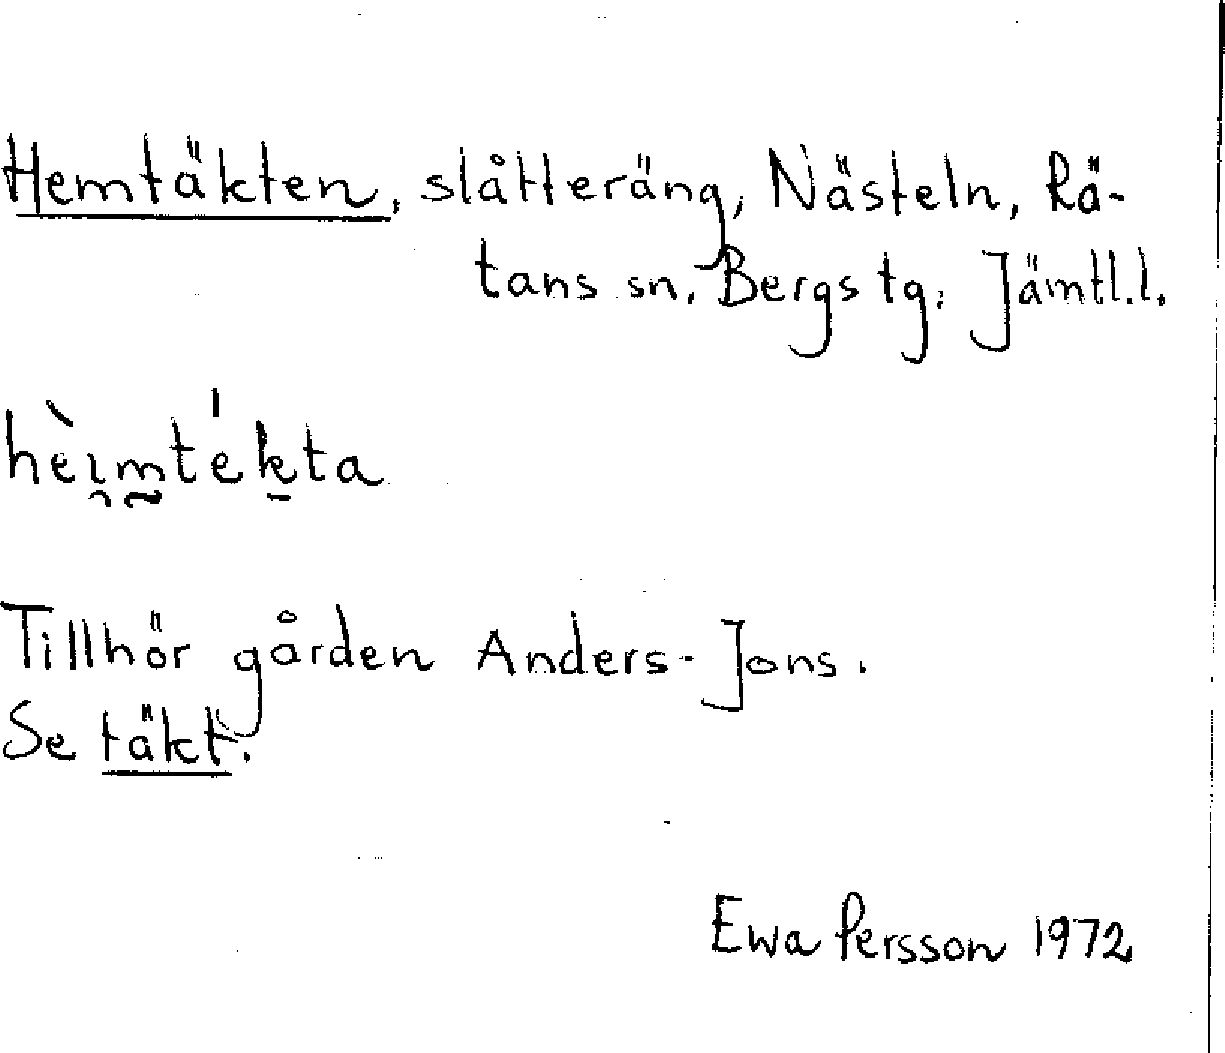 Hemtäkten, slåtteräng, Nästeln, Rä-
tans sn. Bergs tg. Jämtl.l.
hèi̯m̰té́ḵta
Tillhör gården Anders-Jons.
Se täkt.
Ewa Persson 1972